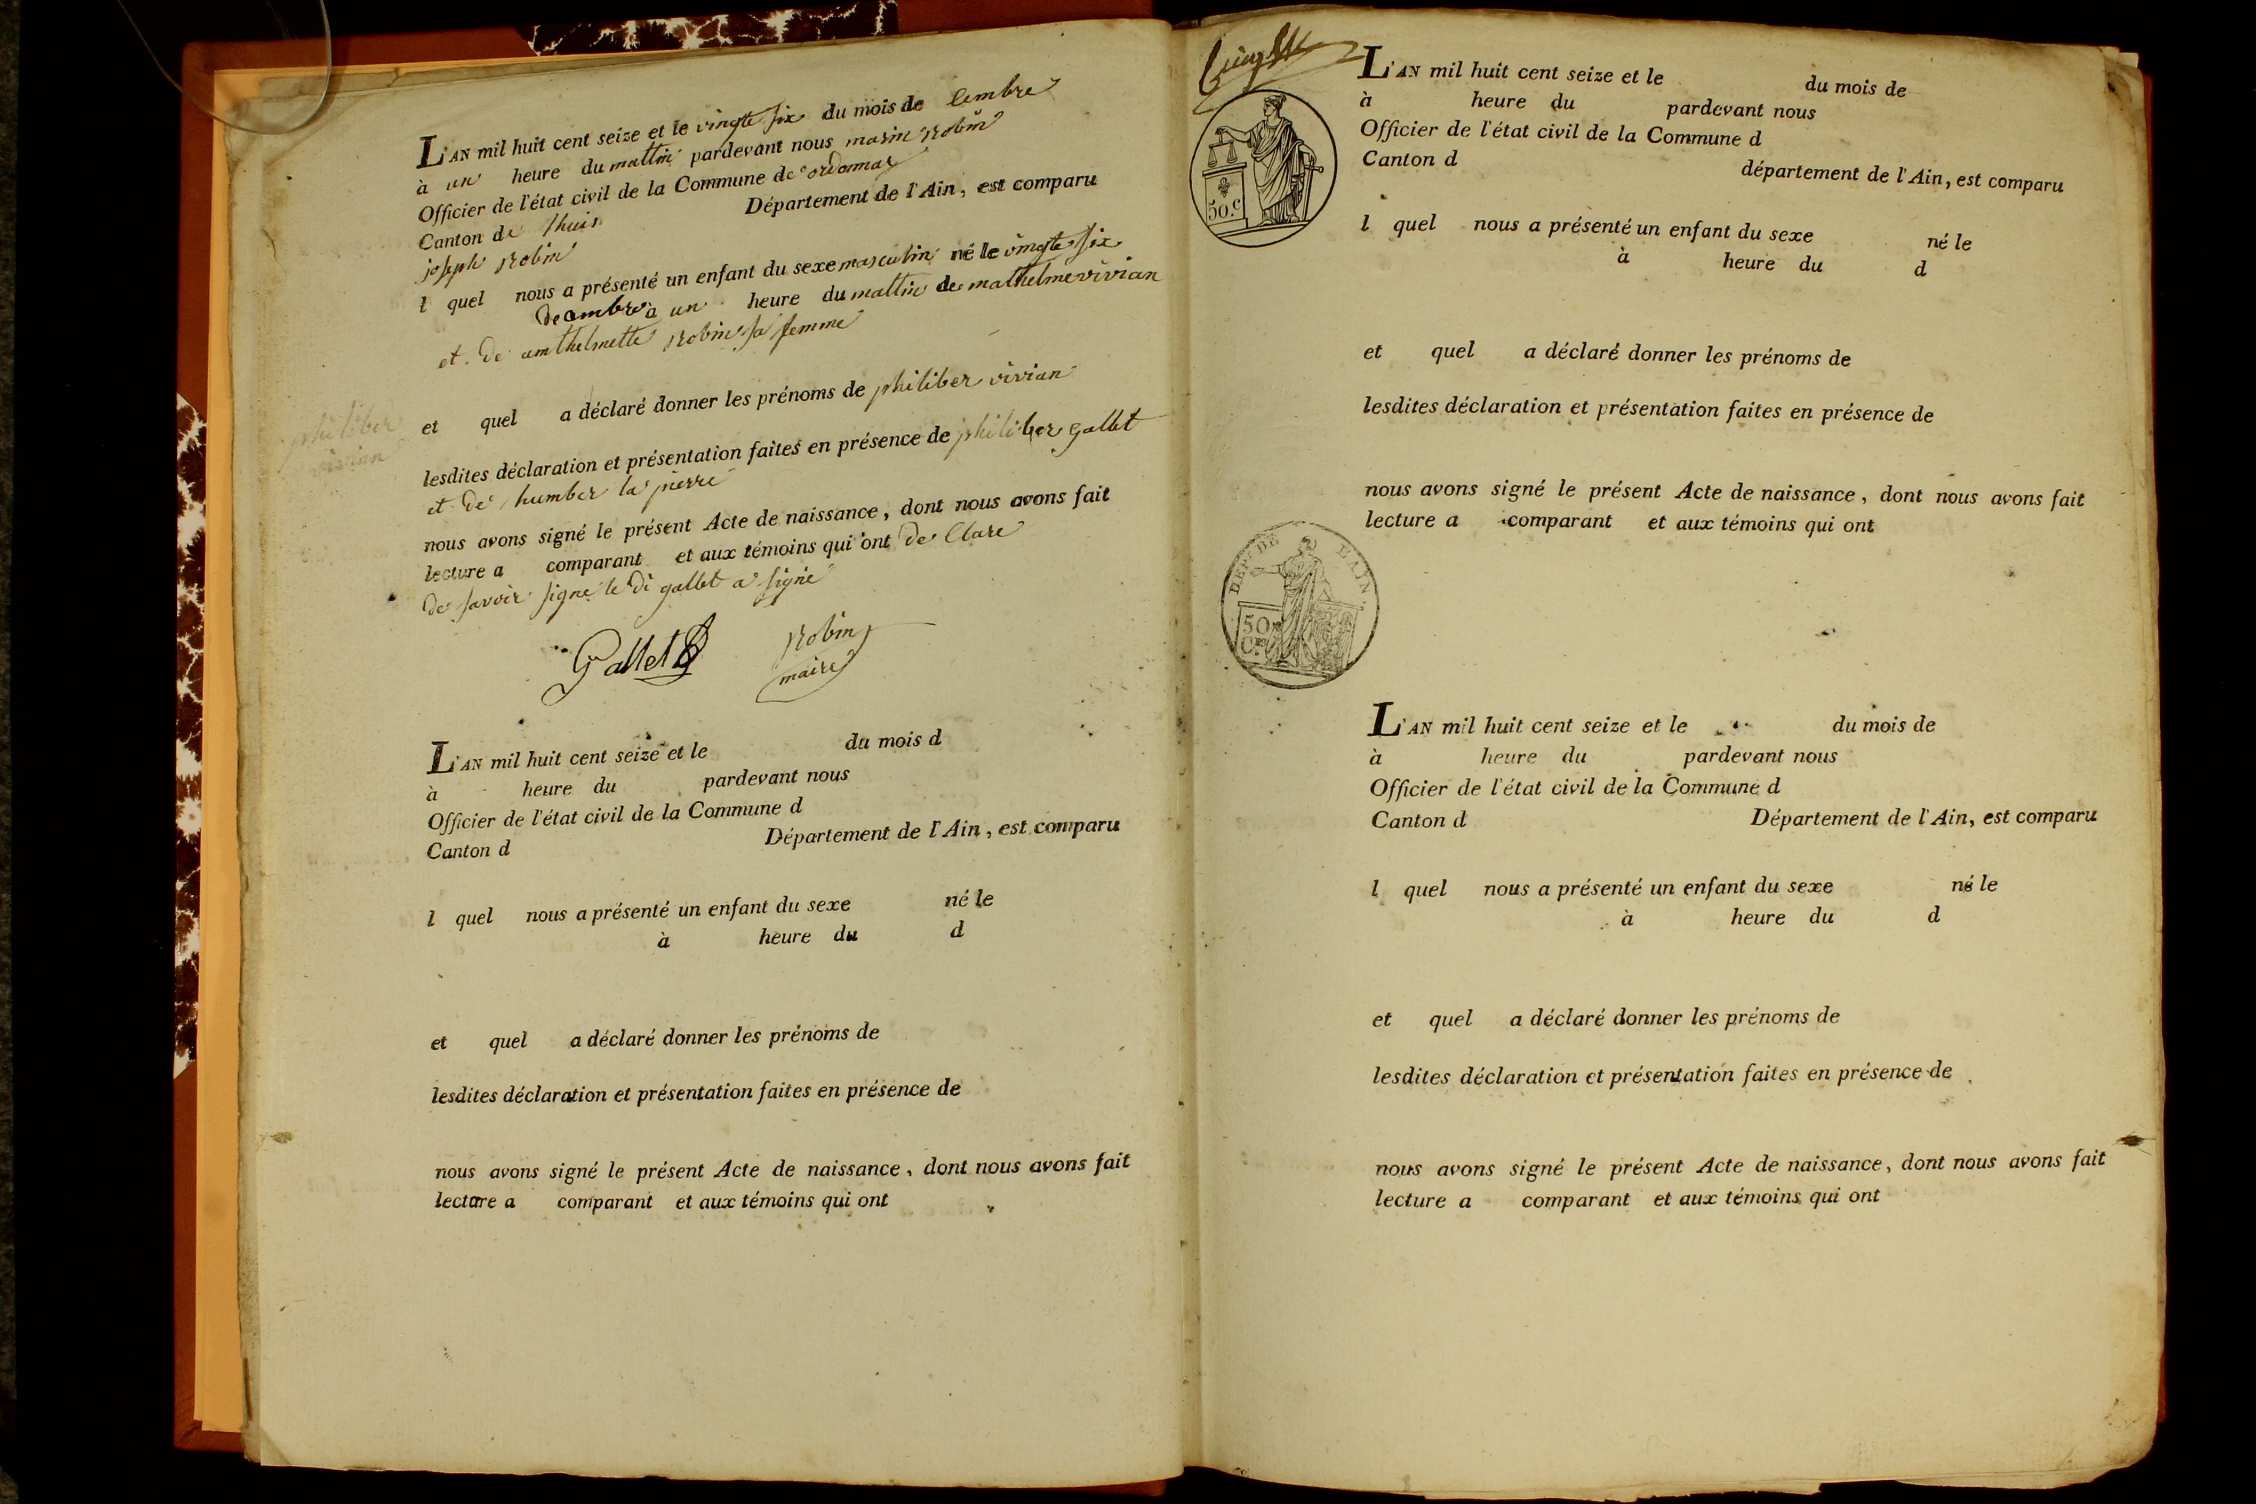 L'AN mil huit cent seize et le vingte six du mois de cembre
à un heure du mattin pardevant nous marin Robin
Officier de l'état civil de la Commune de ordonnaz
Canton de lhuis Département de l'Ain, est comparu
joseph Robin
l quel nous a présenté un enfant du sexe masculin né le vingte six
decembre à un heure du mattin de mathelme vivian
et de anthelmette Robin sa femme
philiber
vivian
et quel a déclaré donner les prénoms de philiber vivian
lesdites déclaration et présentation faites en présence de philiber gallet
et de humber la pierre
nous avons signé le présent Acte de naissance, dont nous avons fait
lecture a comparant et aux témoins qui ont de Clare
de savoir signé le di gallet a signé
Gallet Robin
maire
L'AN mil huit cent seize et le du mois d
à heure du pardevant nous
Officier de l'état civil de la Commune d
Canton d Département de l'Ain, est comparu
l quel nous a présenté un enfant du sexe né le
à heure du d
et quel a déclaré donner les prénoms de
lesdites déclaration et présentation faites en présence de
nous avons signé le présent Acte de naissance, dont nous avons fait
lecture a comparant et aux témoins qui ont
L'AN mil huit cent seize et le du mois de
à heure du pardevant nous
Officier de l'état civil de la Commune d
Canton d département de l'Ain, est comparu
50.c
l quel nous a présenté un enfant du sexe né le
à heure du d
et quel a déclaré donner les prénoms de
lesdites déclaration et présentation faites en présence de
nous avons signé le présent Acte de naissance, dont nous avons fait
lecture a comparant et aux témoins qui ont
DEPT DE L'AIN.
50
CES
L'AN mil huit cent seize et le du mois de
à heure du pardevant nous
Officier de l'état civil de la Commune d
Canton d Département de l'Ain, est comparu
l quel nous a présenté un enfant du sexe né le
à heure du d
et quel a déclaré donner les prénoms de
lesdites déclaration et présentation faites en présence de
nous avons signé le présent Acte de naissance, dont nous avons fait
lecture a comparant et aux témoins qui ont